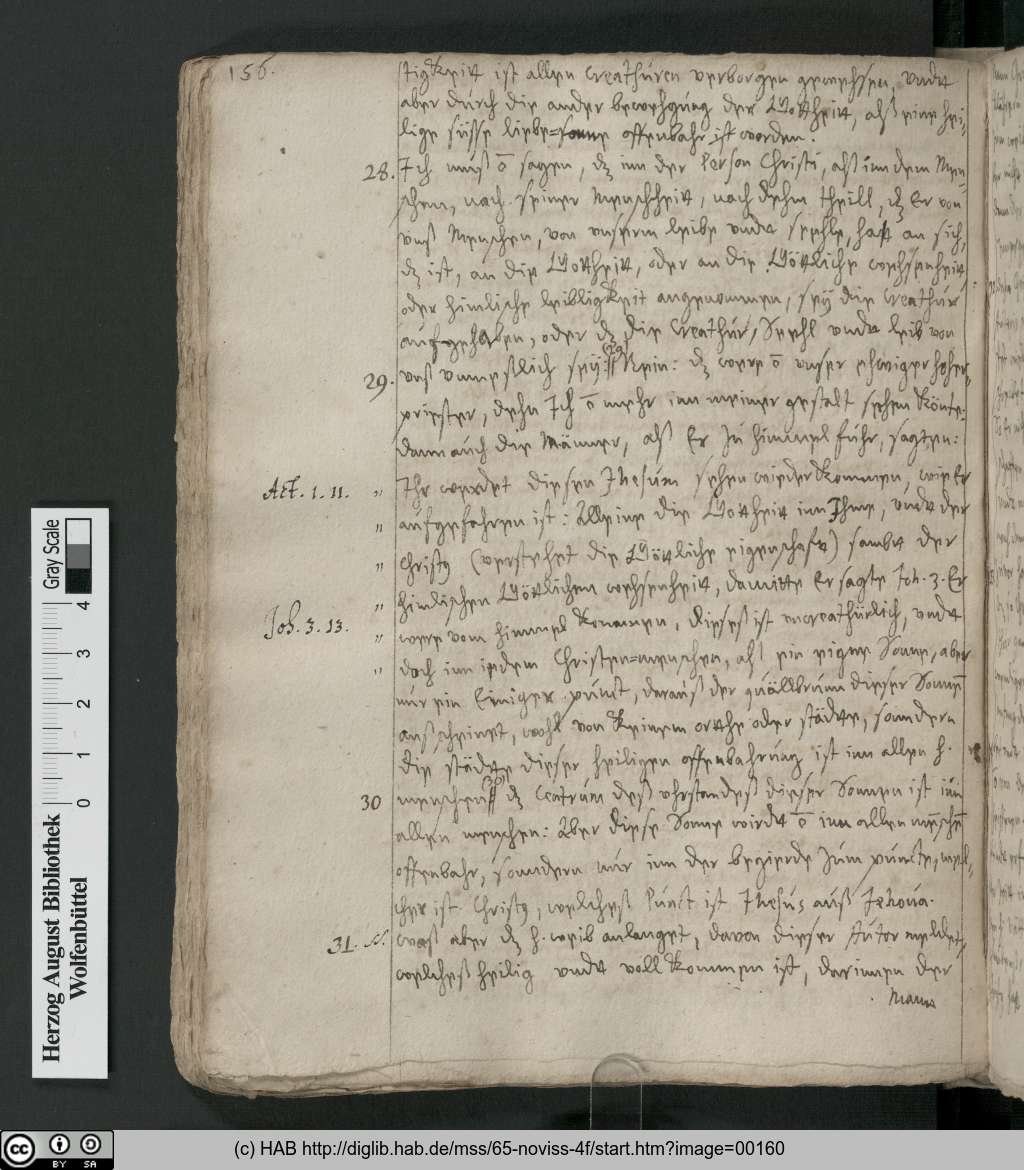 156.
tigkeit ist allen Creathuren verborgen gewehsen, undt
aber durch die ander bewehgung der Gottheit, alß eine hei-
lige süsse liebe=sonne offenbahr ist worden.
28. Ich muß ō sagen, dz inn der Person Christi, alß inn dem Men-
schen, nach seiner Menschheit, nach dehm theill, dz Er von
unß Menschen, von unserm leibe undt seehle, hatt an sich,
dz ist, an die Gottheit, oder an die Göttliche wehsenheit
oder himlische leibligkeit angenommen, seÿ die Creathur
aufgehaben, oder dz die Creathur, Seehl undt leib von
29. unß unmeßlich seÿ: (29) Nein: dz were ō unser ehwiger hoher-
priester, dehn Ich ō mehr inn meiner gestalt sehen könte:
dann auch die Männer, alß Er zu himmel fuhr, sagten:
Act. 1. 11. „ Ihr werdet diesen Jhesum sehen wiederkommen, wie Er
„ aufgefahren ist: Alleine die Gottheit inn Ihme, undt der
„ Christ9 (verstehet die Göttliche eigenschaft) sambt der
„ himlischen Göttlichen wehsenheit, damitte Er sagte Joh. 3. Er
Joh. 3. 13. „ were vom himmel kommen, dieseß ist uncreathürlich, undt
„ doch inn iedem Christen=menschen, alß ein eigne Sonne, aber
nur ein Einiger punct, darauß der quällbrunn dieser Sonnē
außscheinet, wohl von keinem orthe oder städte, sondern
die städte dieser heiligen offenbahrung ist inn allen h.
30 menschen (30) dz Centrum deß vhrstandeß dieser Sonnen ist inn
allen menschen: Aber diese Sonne wirdt ō inn allen mēschē
offenbahr, sondern nur inn der begierde zum puncte, wel-
cher ist Christ9, welcheß Punct ist Jhesus auß Jehova.
31. N. waß aber dz h. weib anlanget, davon dieser Autor meldet,
welcheß heilig undt vollkommen ist, darinnen der
Mann
Herzog August Bibliothek
Wolfenbüttel
0 1 2 3 4
Gray Scale
(c) HAB http://diglib.hab.de/mss/65-noviss-4f/start.htm?image=00160
cc BY SA